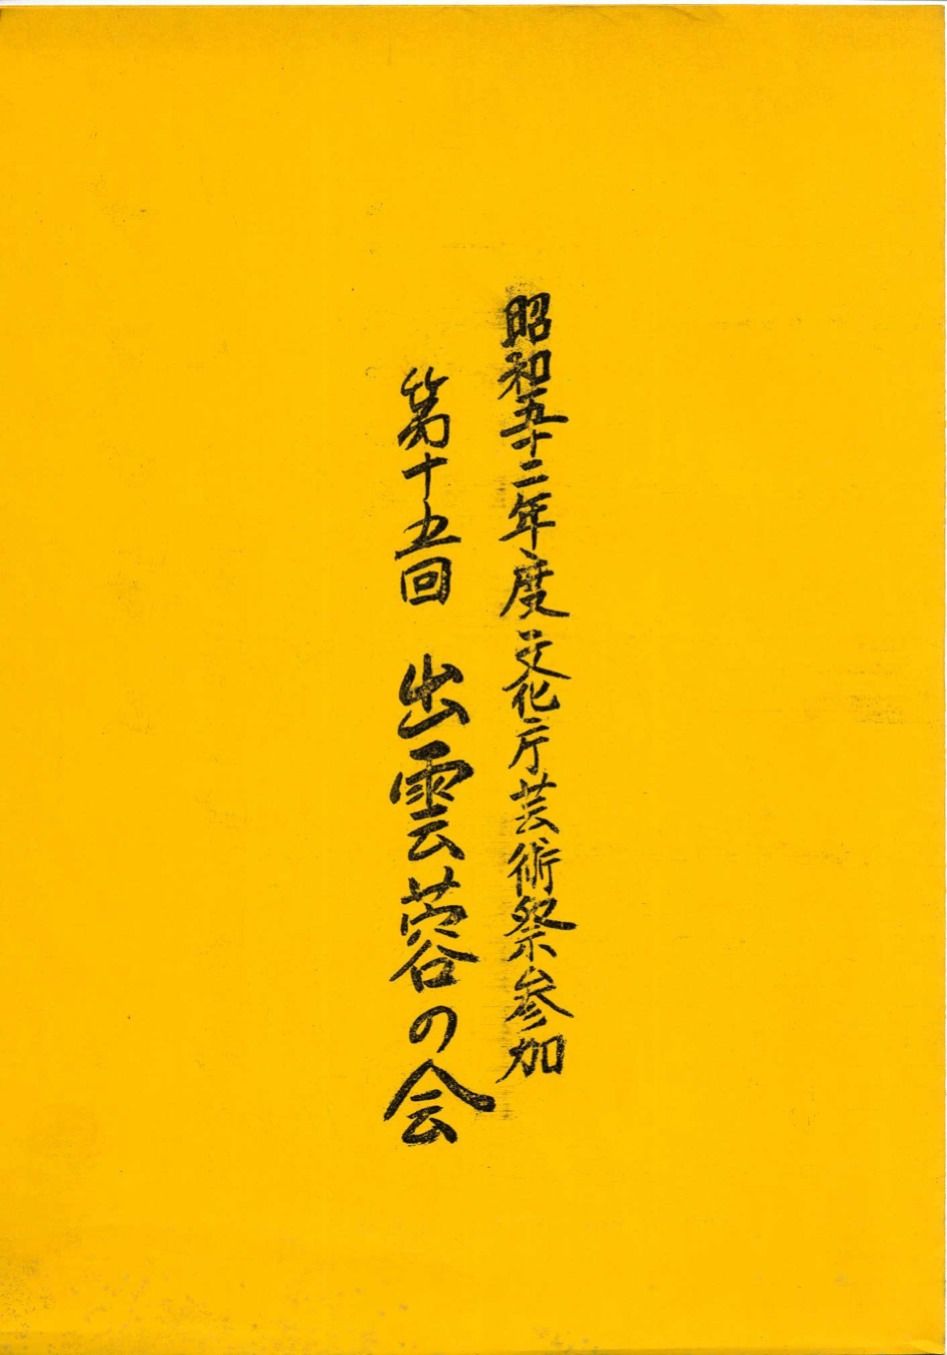 昭和五十二年度文化庁芸術祭参加
第十五回 出雲蓉の会